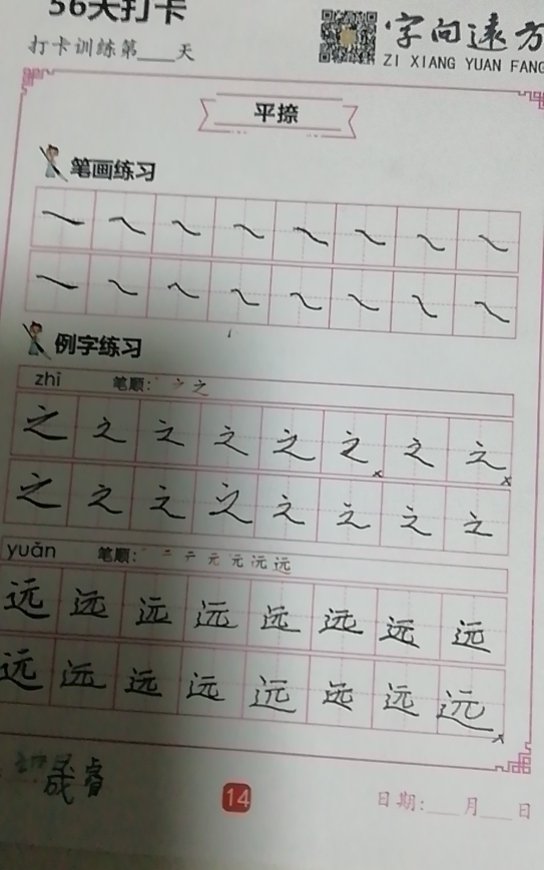 56天打卡
打卡训练第___天
字向远方
ZI XIANG YUAN FANG
平捺
笔画练习
例字练习
zhī 笔顺: 丶 之 之
之 之 之 之 之 之 之 之
之 之 之 之 之 之 之 之
yuǎn 笔顺: 一 二 テ 元 元 沅 远
远 远 远 远 远 远 远 远
远 远 远 远 远 远 远 远
晟睿
14
日期:___月___日